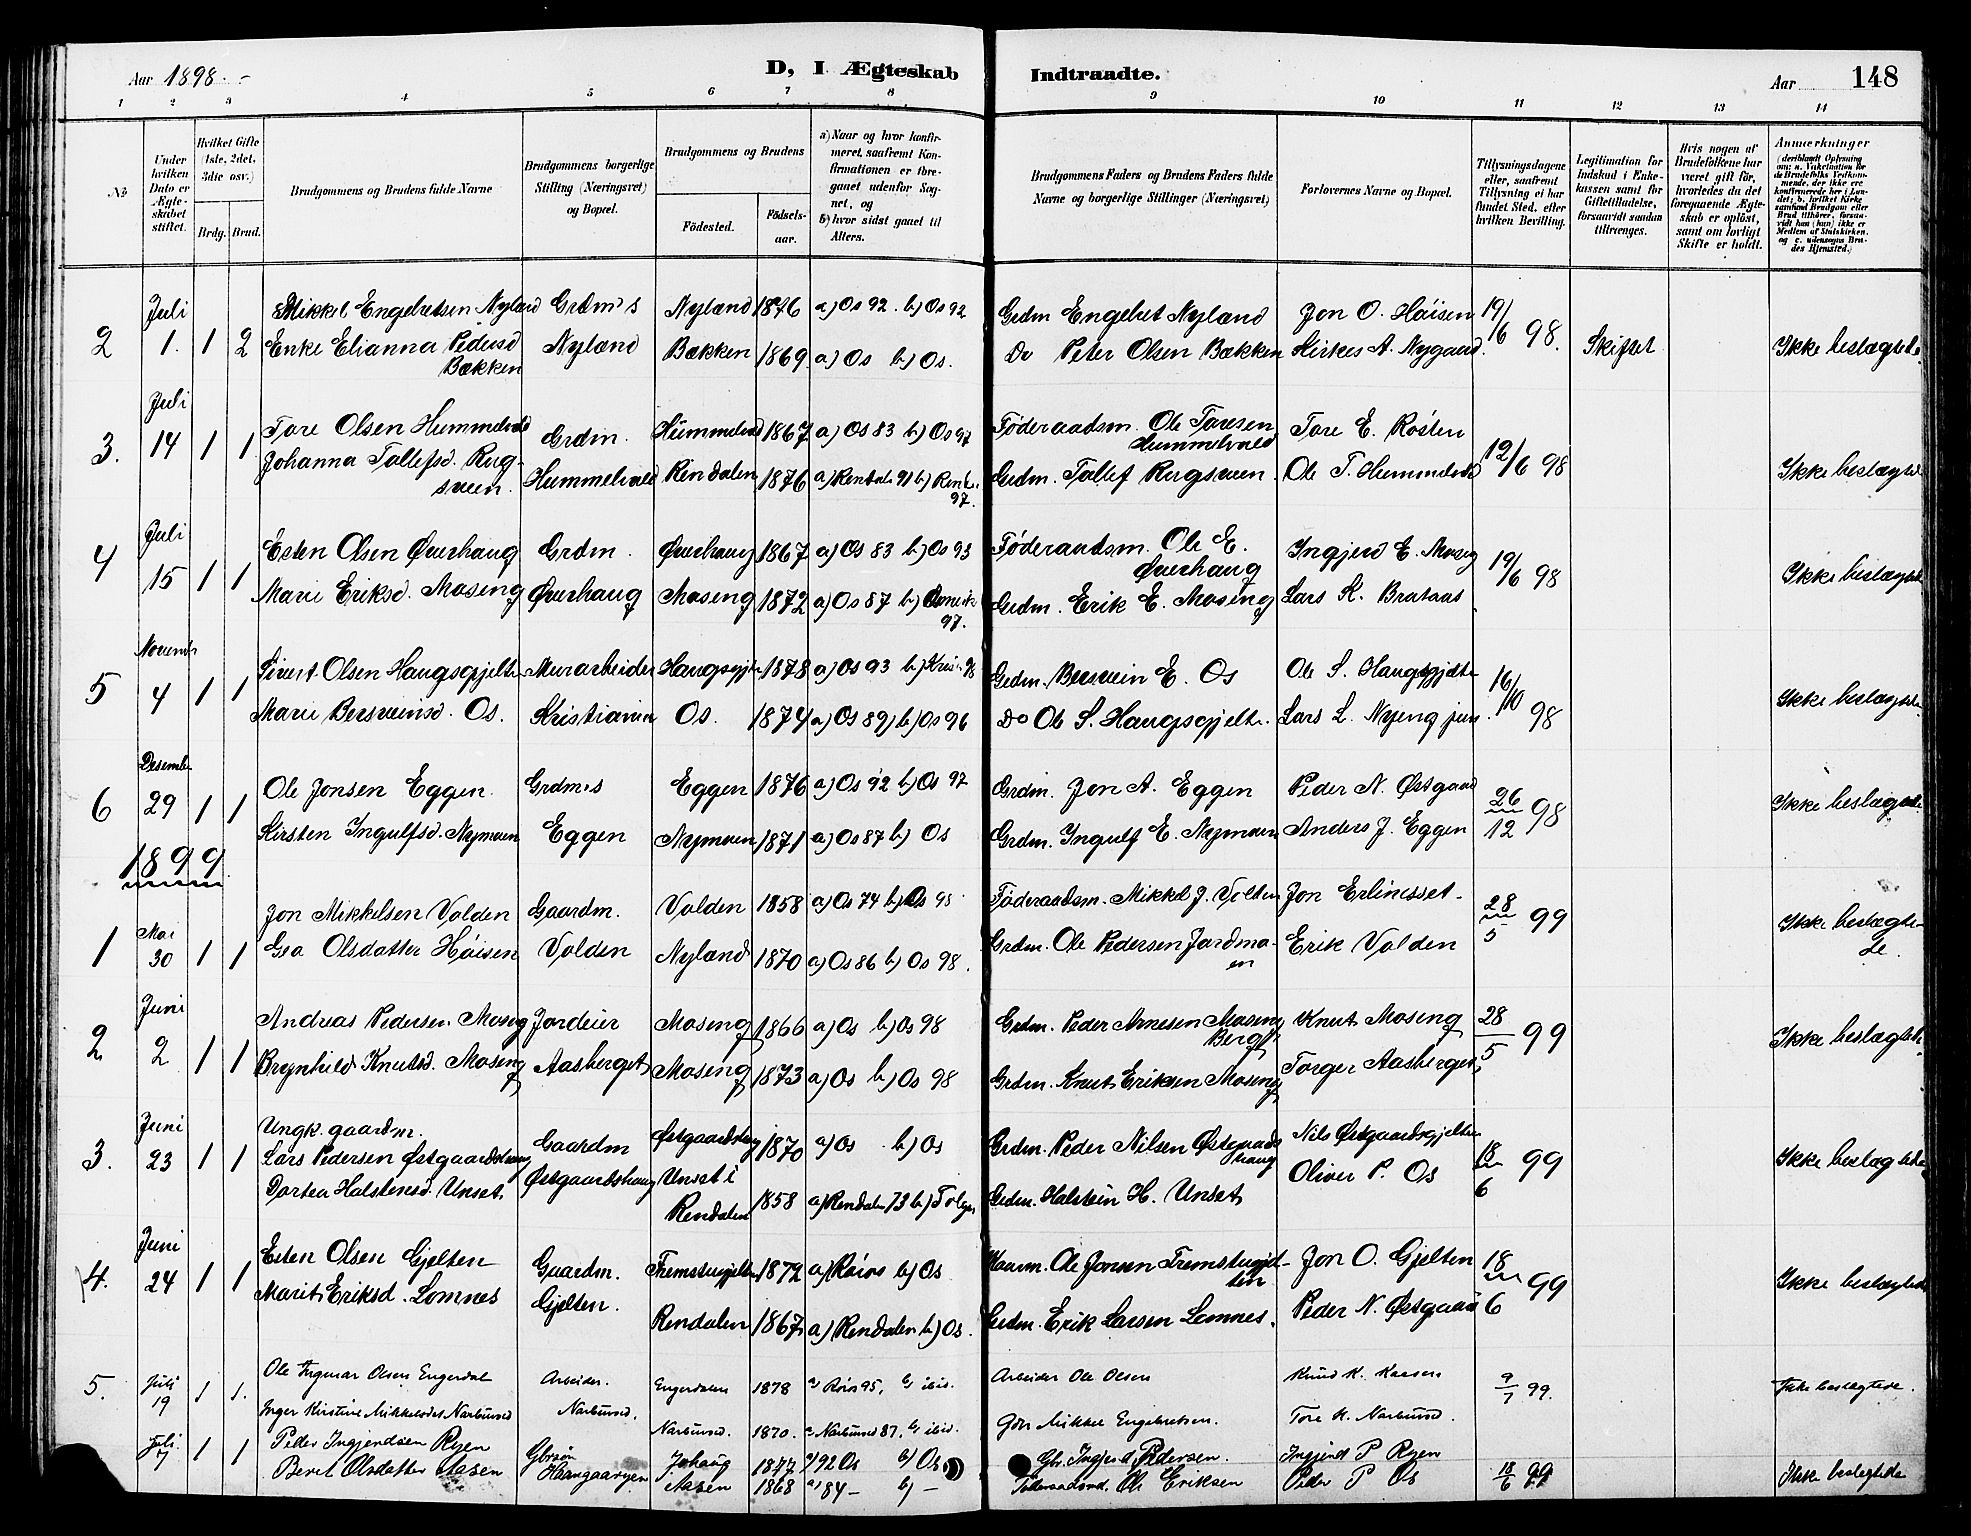 Aar 1898.
D, I Ægteskab Indtraadte.
Aar 148
1 2 3 4 5 6 7 8 9 10 11 12 13 14
No
Under hvilken Dato er Ægteskabet stiftet.
Hvilket Gifte (1ste, 2det, 3die osv.)
Brdg. Brud.
Brudgommens og Brudens fulde Navne
Brudgommens borgerlige Stilling (Næringsvei) og Bopæl.
Brudgommens og Brudens
Fødested.
Fødselsaar.
a) Naar og hvor konfirmeret, saafremt Konfirmationen er foreganet udenfor Sognet, og
b) hvor sidst gaaet til Alters.
Brudgommens Faders og Brudens Faders fulde Navne og borgerlige Stillinger (Næringsvei)
Forlovernes Navne og Bopæl.
Tillysningsdagene eller, saafremt Tillysning ei har fundet Sted, efter hvilken Bevilling.
Legitimation for Indskud i Enkekassen samt for Giftetilladelse, forsaavidt saadan tiltrænges.
Hvis nogen af Brudefolkene har været gift før, hvorledes da det foregaaende Ægteskab er opløst, samt om lovligt Skifte er holdt.
Anmærkninger
2 Juli 1. 1 2 Mikkel Engebretsen Nyland Grdm's Nyland 1876 a) Os 92 b) Os 92 Grdm Engebret Nyland Jon O. Høisen 19/6 98. Skiftet Ikke beslægtede
Enke Elianna Pedersd Bækken Nyland Bækken 1869 a) Os b) Os. Do Peter Olsen Bækken Kirkes A. Nygaard.
3. Juli 14 1 1 Tore Olsen Hummelvold Grdm. Hummelvold 1867 a) Os 83 b) Os 97 Føderaadsm. Ole Toresen Hummelvold Tore E. Røsten 12/6 98 Ikke beslægtede
Johanna Tollefsd. Rugsveen. Hummelvold Rendalen 1876 a) Rendalen 91 b) Rend. 97. Grdm. Tollef Rugsveen. Ole T. Hummelvold
4 Juli 15 1 1 Esten Olsen Øverhaug Grdm. Øverhaug 1867 a) Os 83 b) Os 93 Føderaadsm. Ole E. Øverhaug Ingjerd E. Moseng 19/6 98 Ikke beslægtede
Marie Eriksd. Moseng Øverhaug Moseng 1872 a) Os 87 b) 97. Grdm. Erik E. Moseng Lars K. Brataas
5 Novemb 4 1 1 Sivert Olsen Haugsgjelten Murarbeider Haugsgjelt 1878 a) Os 93 b) Kris. 98 Grdm. Bersvein E. Os Ole S. Haugsgjelten 16/10 98 Ikke beslægtede
Marie Bersveinsd. Os. Kristiania Os. 1874 a) Os 89 b) Os 96 Do Ole S. Haugsgjelten. Lars L. Nyeng jun.
6 Desember 29 1 1 Ole Jonsen Eggen. Grdm's Eggen 1876 a) Os 92 b) Os 97 Grdm. Jon A. Eggen Peder N. Østgaard 26/12 98 Ikke beslægtede
Kirsten Ingulfsd. Nymoen Eggen Nymoen 1871 a) Os 87 b) Os Grdm. Ingulf E. Nymoen Anders J. Eggen
1899
1 Mai 30 1 1 Jon Mikkelsen Volden Gaardm. Volden 1858 a) Os 74 b) Os 98 Føderaadsm. Mikkel J. Volden Jon Erlinesset 28/5 99 Ikke beslægtede.
Gea Olsdatter Høisen Volden Nyland 1870 a) Os 86 b) Os 98. Grdm. Ole Pedersen Jordmoen Erik Volden
2 Juni 2 1 1 Andreas Pedersen Moseng Jordeier Moseng 1866 a) Os b) Os 98 Grdm. Peder Arnesen Moseng Berg Knut Moseng 28/5 99 Ikke beslægtede
Brynhild Knutsd. Moseng Aasberget Moseng 1873 a) Os b) Os 98 Grdm. Knut Eriksen Moseng Torger Aasberget
3. Juni 23 1 1 Ungk. gaardm. Lars Pedersen Østgaardshaug Gaardm Østgaardshaug 1870 a) Os b) Os Grdm. Peder Nilsen Østgaardshaug Nils Østgaardsgjelten 18/6 99 Ikke beslægtede
Dortea Halstensd. Unset Østgaardshaug Unset i Rendalen 1858 a) Rendalen 73 b) Tolgen Grdm. Halstein H. Unset Oliver P. Os
4. Juni 24 1 1 Esten Olsen Gjelten Gaardm. Fremstugjelten 1872 a) Røros b) Os Ole Jonsen Fremstugjelten Jon O. Gjelten 18/6 99 Ikke beslægtede
Marit Eriksd. Lomnes Gjelten. Rendalen 1867 a) Rendalen b) Os. Grdm. Erik Larsen Lomnes. Peder N. Østgaard
5. Juli 19 1 1. Ole Ingmar Olsen Engerdal Arbeider. Engerdalen 1878 a) Røros 95, b) ibid. Arbeider Ole Olsen Knud K. 9/7 99. Ikke beslægtede.
Inger Kirstine Mikkelsdtr Narbuvod Narbuvod. Narbuvod. 1870. a) Narbuvod 87, b) ibid. Mikkel Engebretsen. Tore K. Narbuvod.
Juli 7 1 1 Peder Ingjerdsen Ryen Gbrsøn Johaug 1877 a) 92 Os b) Os Gbr. Ingjerd Pedersen. Ingjerd P Ryen 18/6 99 Ikke beslegtede
Beret Olsdatter Aasen Haangaaryen Aasen 1868 a) 84 – b) – Føderaadsmd. Ole Eriksen Peder P Os